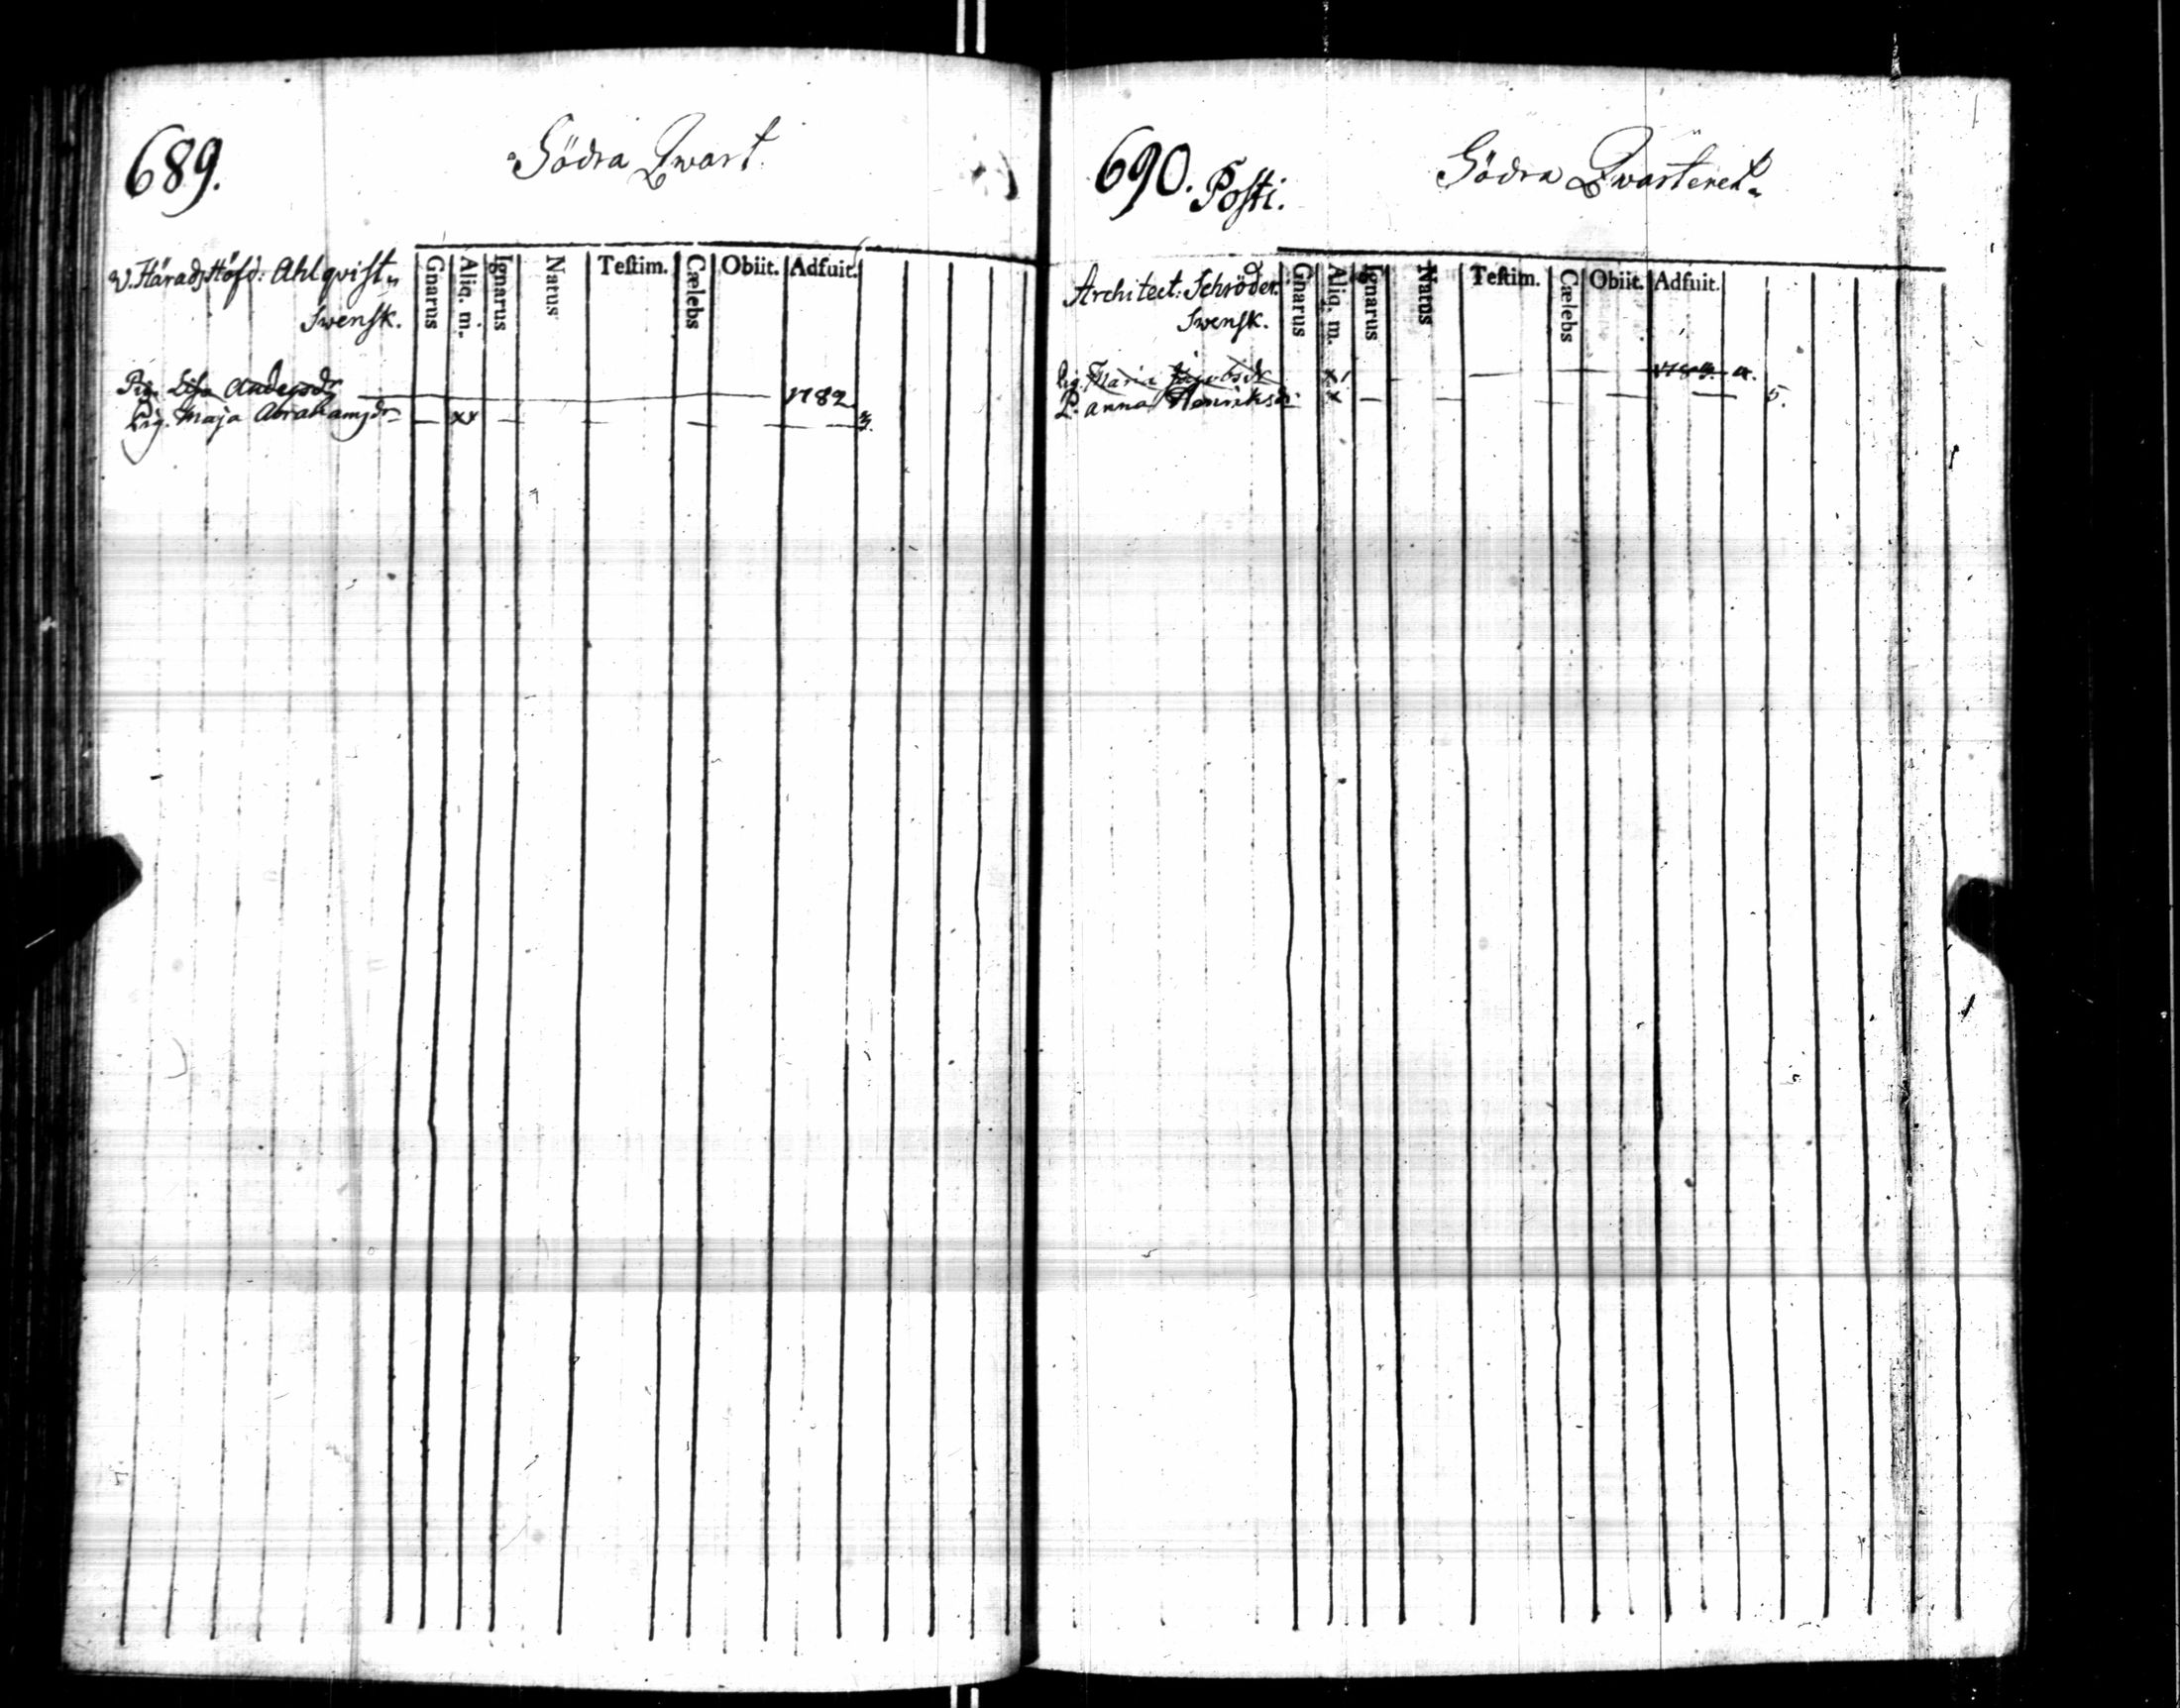 689.
Södra Qwart.
V. Härads Höfd: Ahlqvist
Swensk.
Gnarus Aliq. m. Ignarus Natus Teſtim. Cælebs Obiit. Adfuit.
Pig. Lisa Andersdr 1782
Pig. Maja Abrahamsdr — xx — — — — — — 3.
690. Posti.
Södra Qwarteret
Architect: Schröder.
Swensk.
Gnarus Aliq. m. Ignarus Natus Teſtim. Cælebs Obiit. Adfuit.
Pig. Maria Jacobsdr
P. Anna Henriksdr x — — — — — 5.